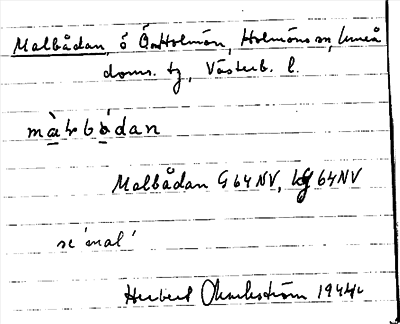 Malbådan, ö Ö. Holmön, Holmöns sn, Umeå
doms. tg, Västerb. l.
màḷbådan
Malbådan G 64 NV, 64 NV
se ´mal´
Herbert 1944